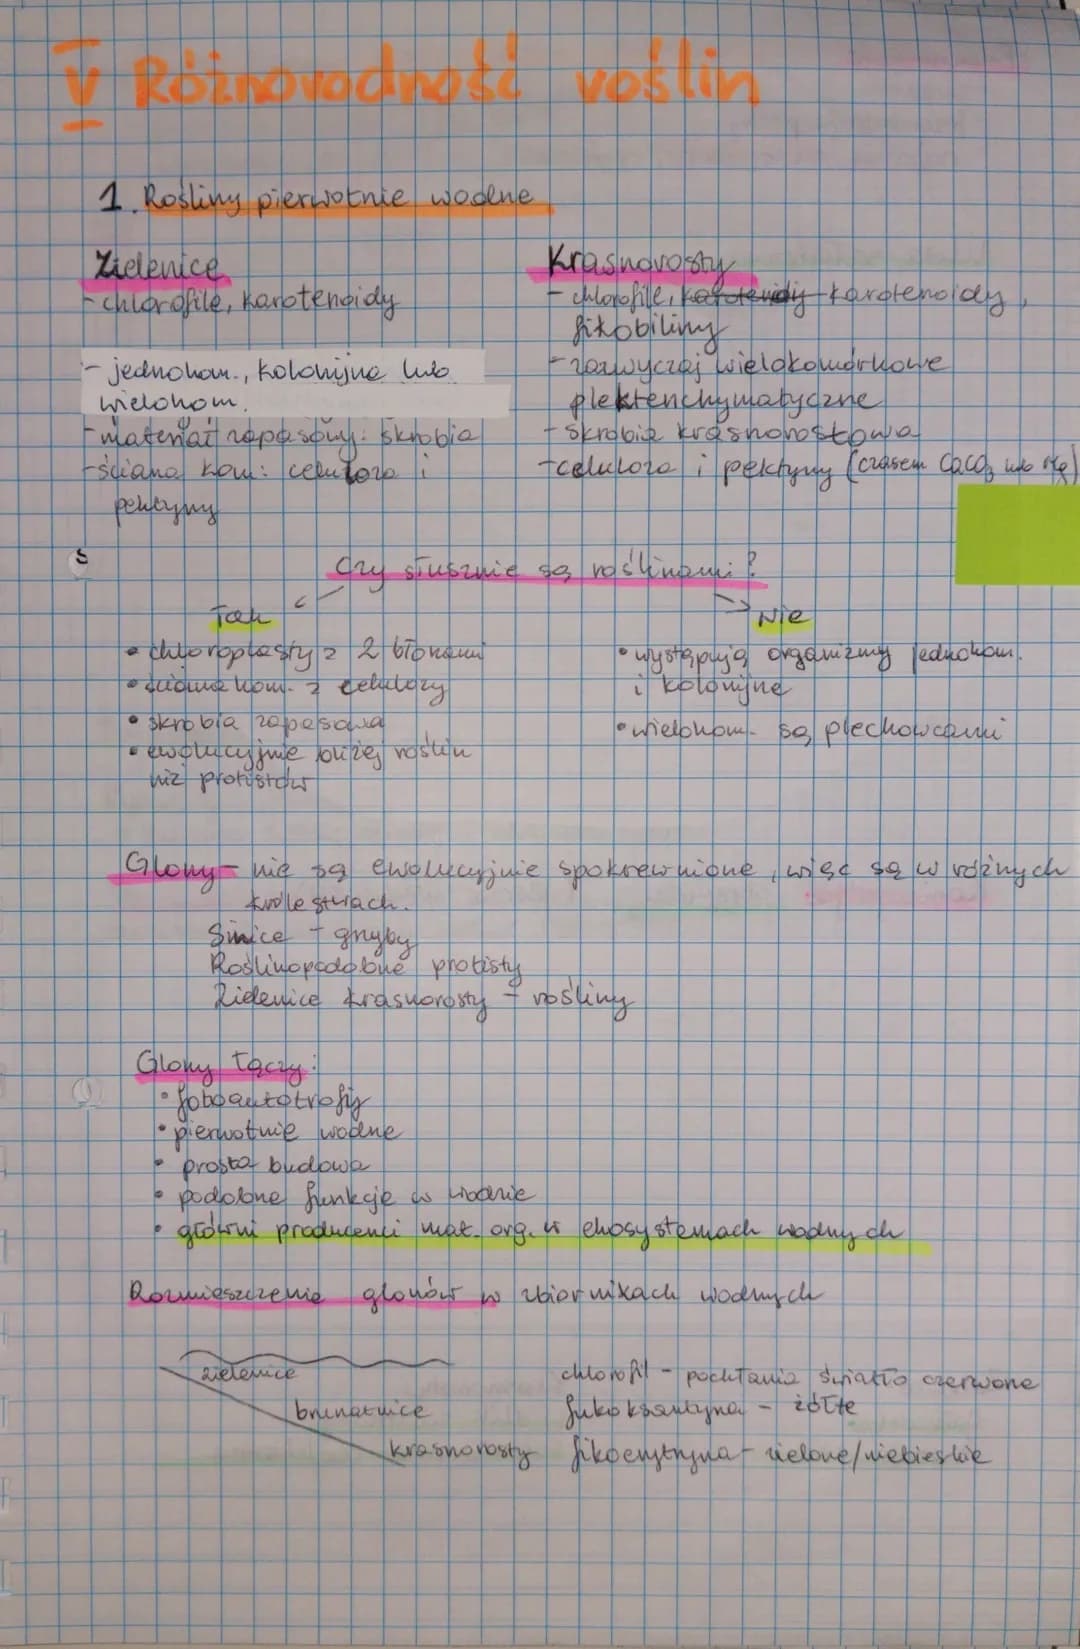 V Różnorodność roślin
1. Rośliny pierwotnie wodne
Zielenice
- chlorofile, karotenoidy
- jednokom., kolonijne lub
wielokom.
- materiał zapasowy: skrobia
- ściana kom: celuloza i
pektyny
Krasnorosty
- chlorofile, karotenoidy,
fikobiliny
- zazwyczaj wielokomórkowe
plektenchymatyczne
- skrobia krasnorostowa
- celuloza i pektyny (czasem CaCO3 lub Mg)
Czy słusznie są roślinami?
Tak
• chloroplasty z 2 błonami
• ściana kom. z celulozy
• skrobia zapasowa
• ewolucyjnie bliżej roślin
niż protistów
Nie
• występują organizmy jednokom.
i kolonijne
• wielokom. są plechowcami
Glony - nie są ewolucyjnie spokrewnione, więc są w różnych
królestwach.
Sinice - gnyby
Roślinopodobne protisty
Zielenice krasnorosty - rośliny
Glony łączy:
• fotoautotrofizm
• pierwotnie wodne
• prosta budowa
• podobne funkcje w wodzie
• główni producenci mat. org. w ekosystemach wodnych
Rozmieszczenie glonów w zbiornikach wodnych
zielenice
brunatnice
krasnorosty
chlorofil - pochłania światło czerwone
fukoksantyna - żółte
fikoerytryna - zielone/niebieskie